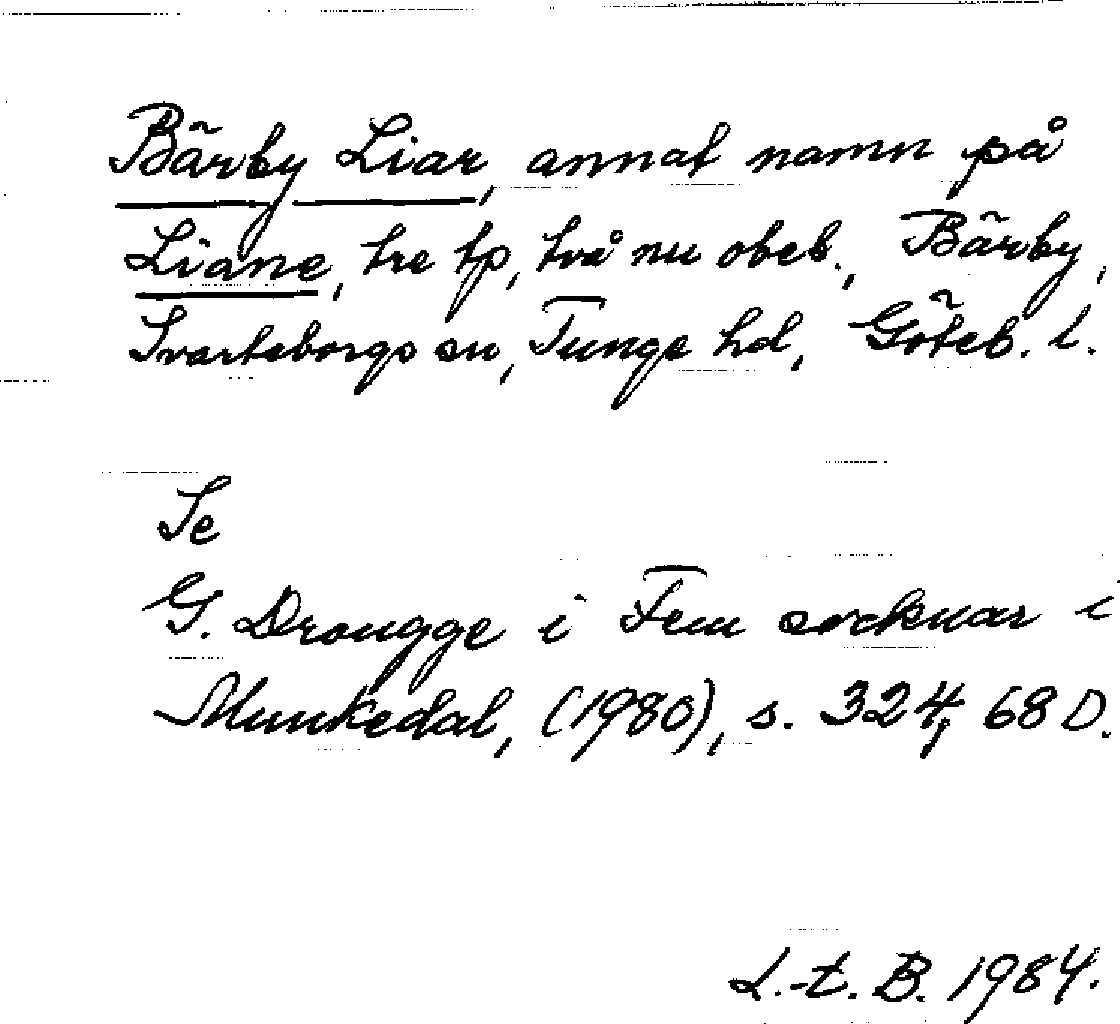 Bärby Liar, annat namn på
Liane, tre tp, två nu obeb., Bärby,
Svarteborgs sn, Tunge hd, Göteb. l.
Se
G. Drougge i Fem socknar i
Munkedal, (1980), s. 324, 68 D.
L.-t. B. 1984.